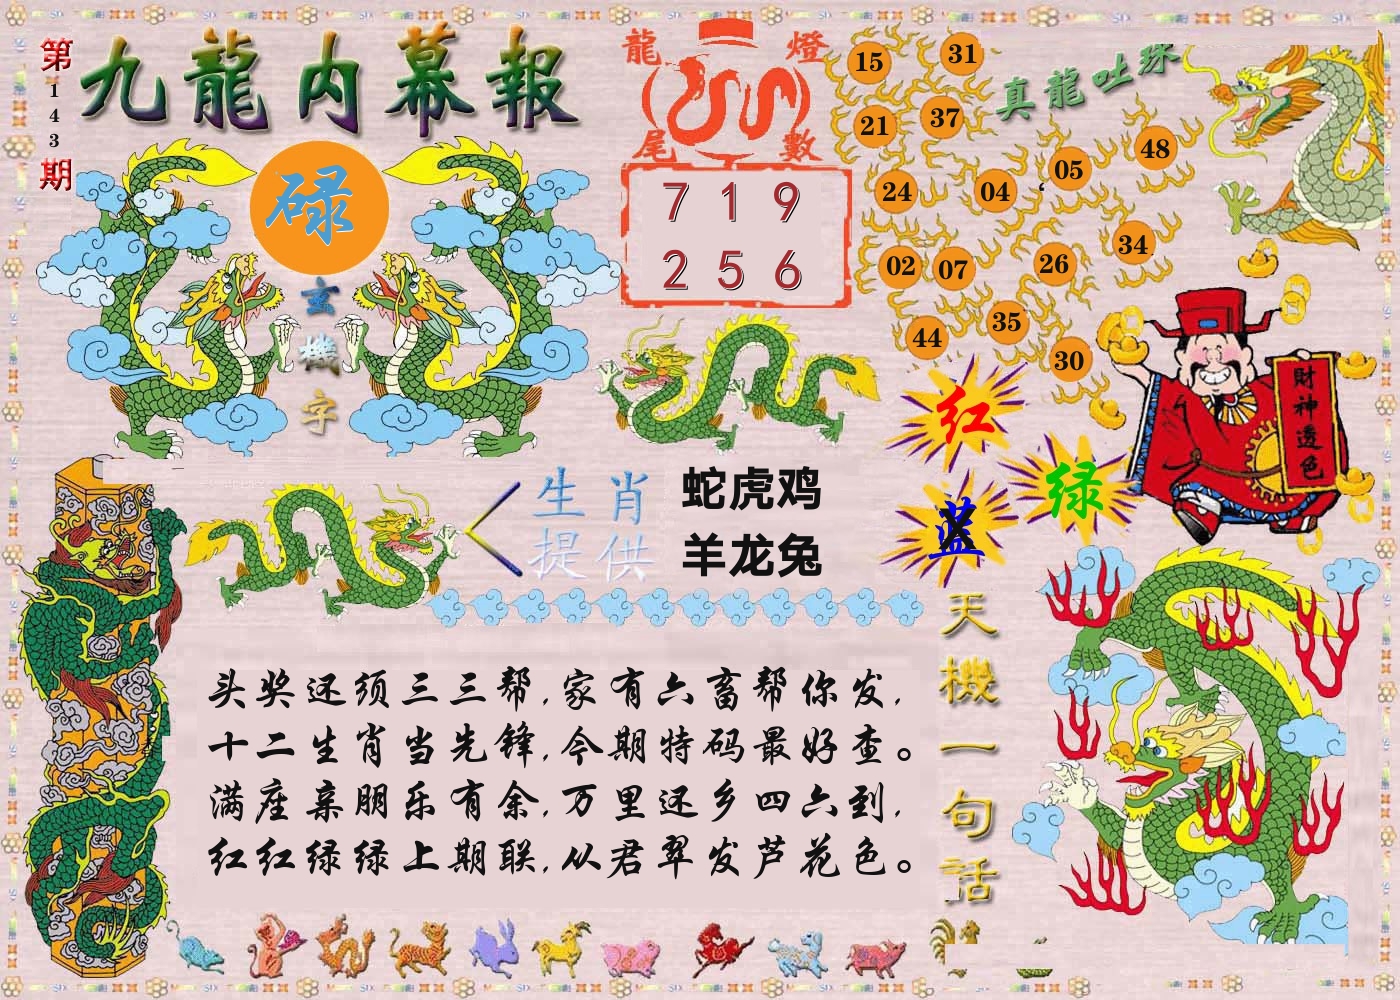 第143期
九龍内幕報
碌
玄機字
龍燈
尾數
7 1 9
2 5 6
真龍吐珠
15 31
21 37
24 04 05 48
02 07 26 34
44 35 30
财神透色
红
绿
蓝
生肖
提供
蛇虎鸡
羊龙兔
天機一句話
头奖还须三三帮,家有六畜帮你发,
十二生肖当先锋,今期特码最好查。
满座亲朋乐有余,万里还乡四六到,
红红绿绿上期联,从君翠发芦花色。